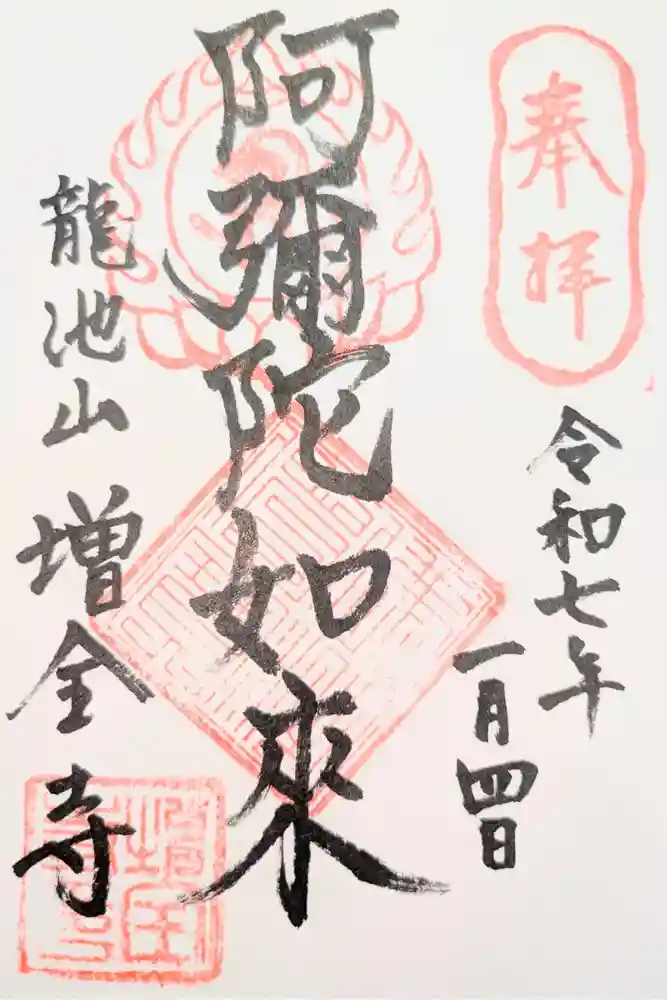 奉拝
令和七年
一月四日
阿彌陀如來
龍池山 増全寺